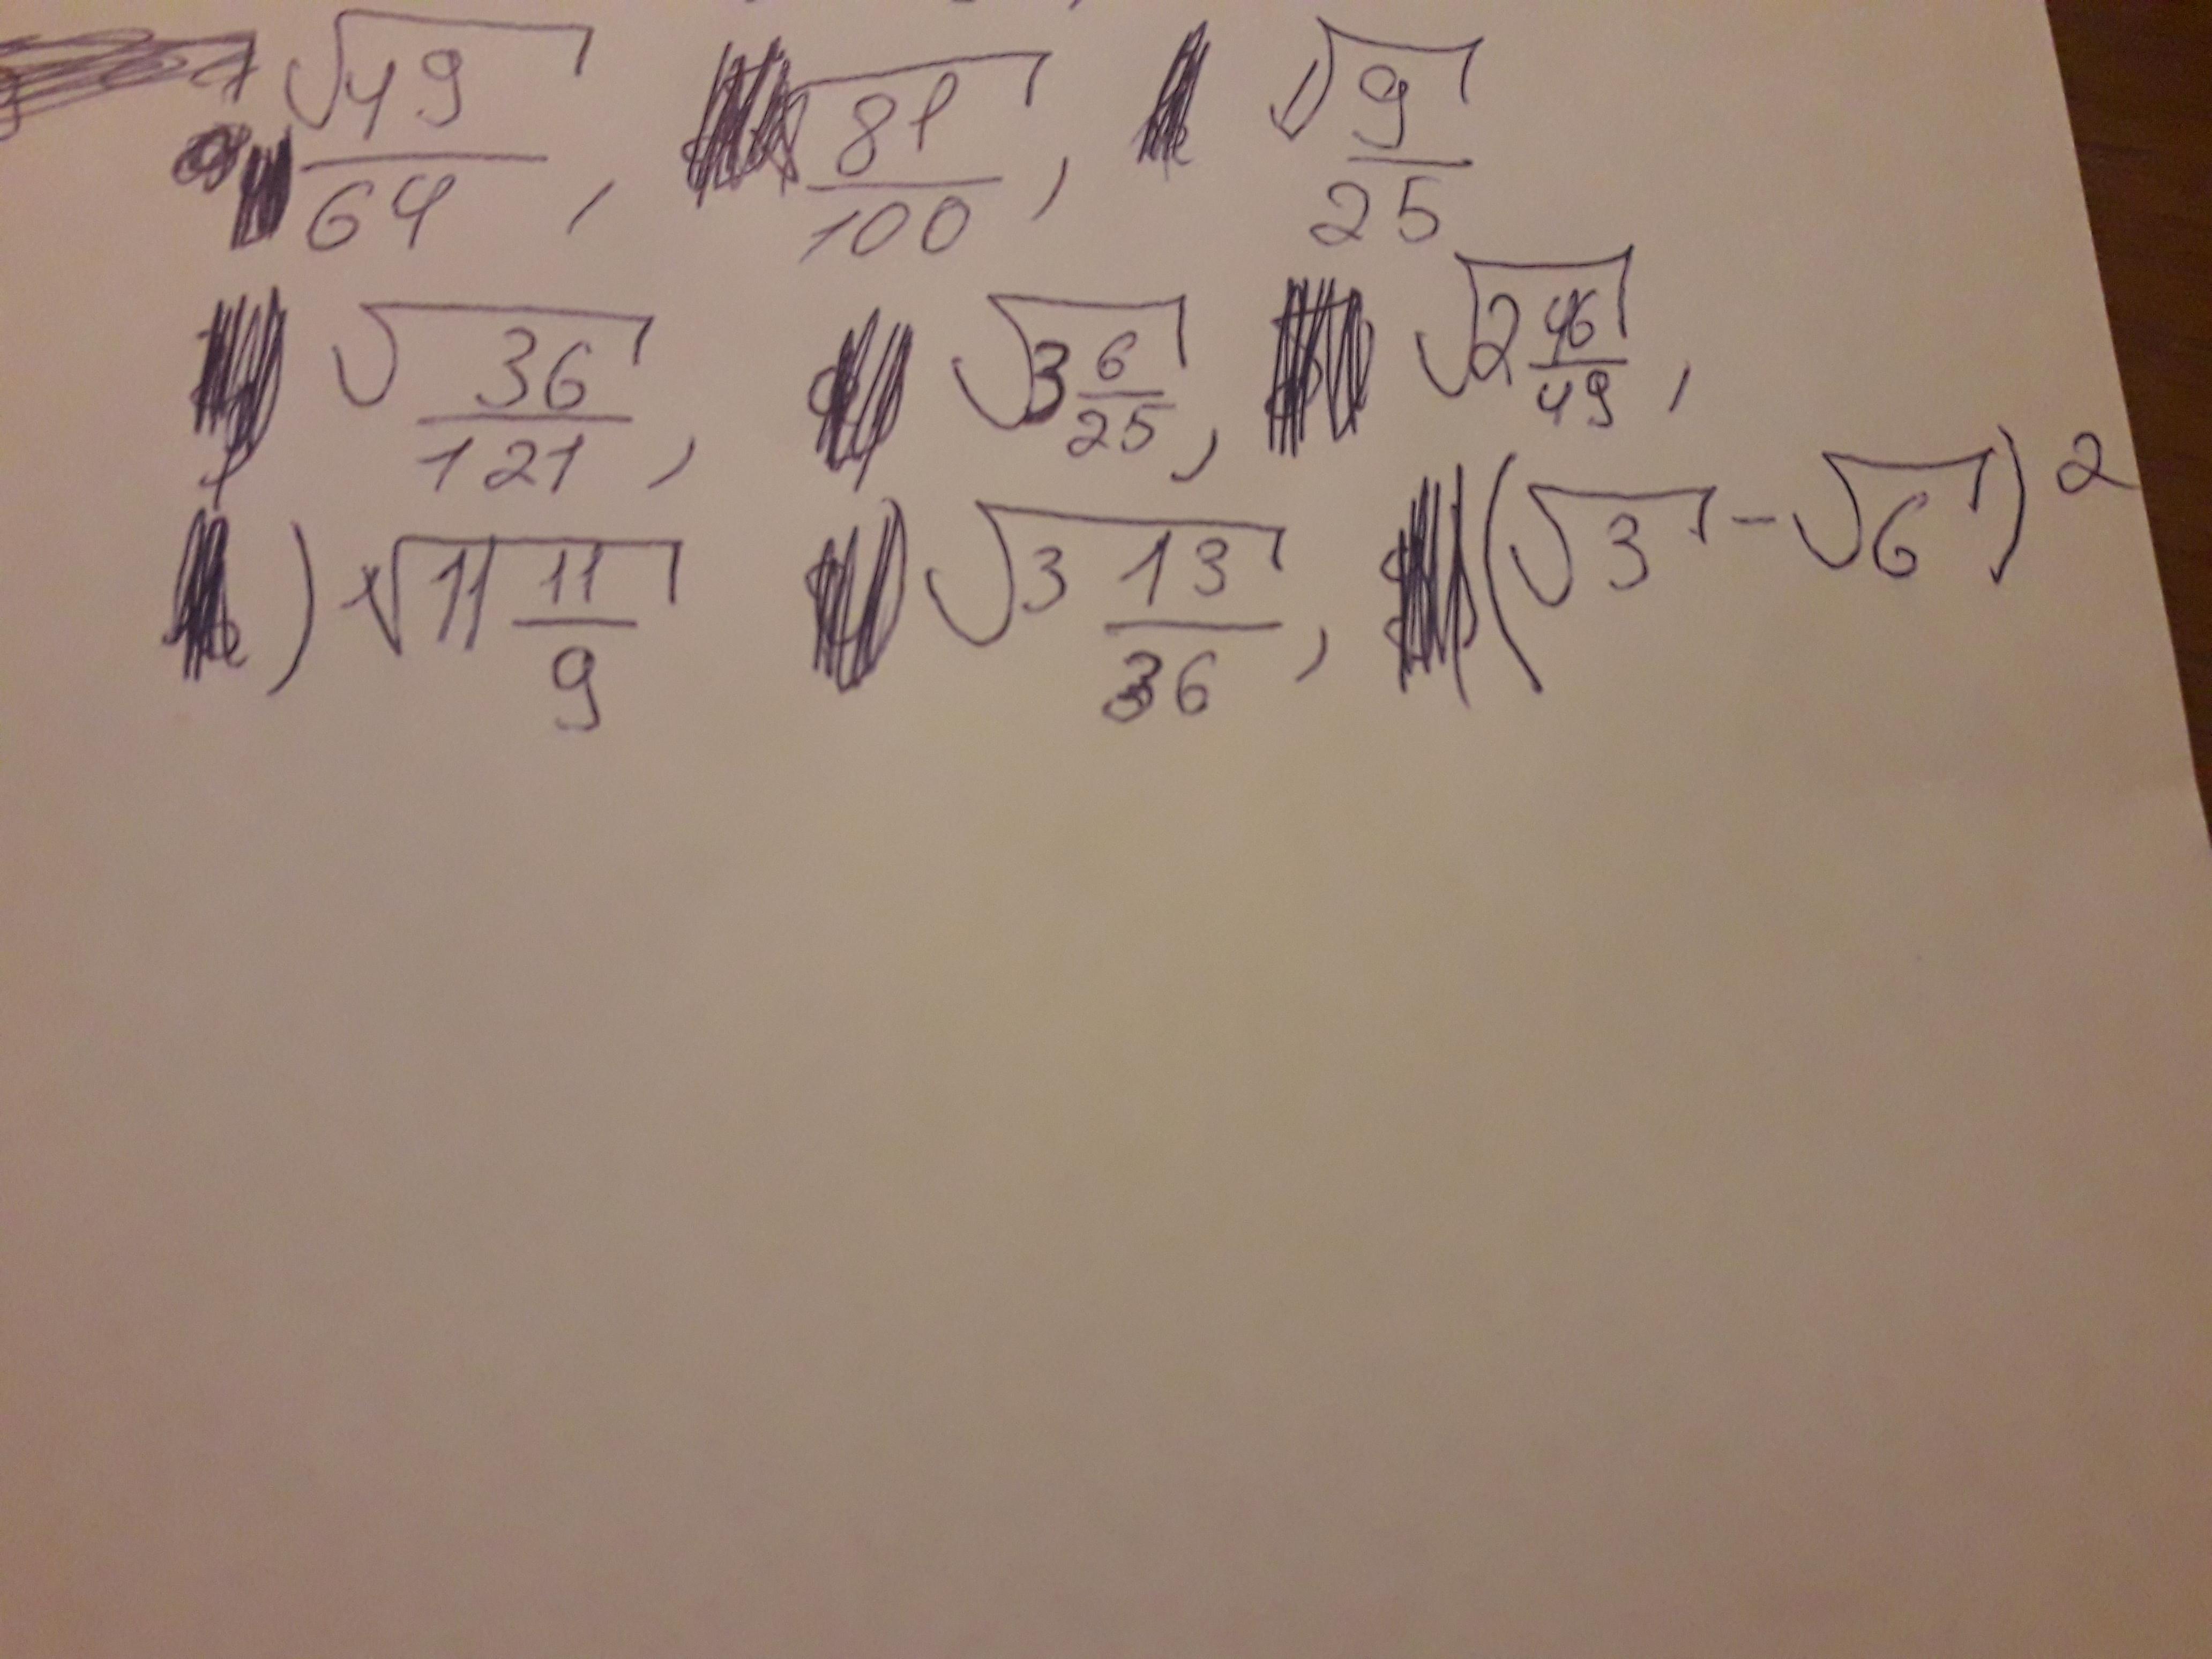 √49/64, √81/100, √9/25
√36/121, √3 6/25, √2 46/49,
) √11 11/9 √3 13/36, (√3 - √6)²